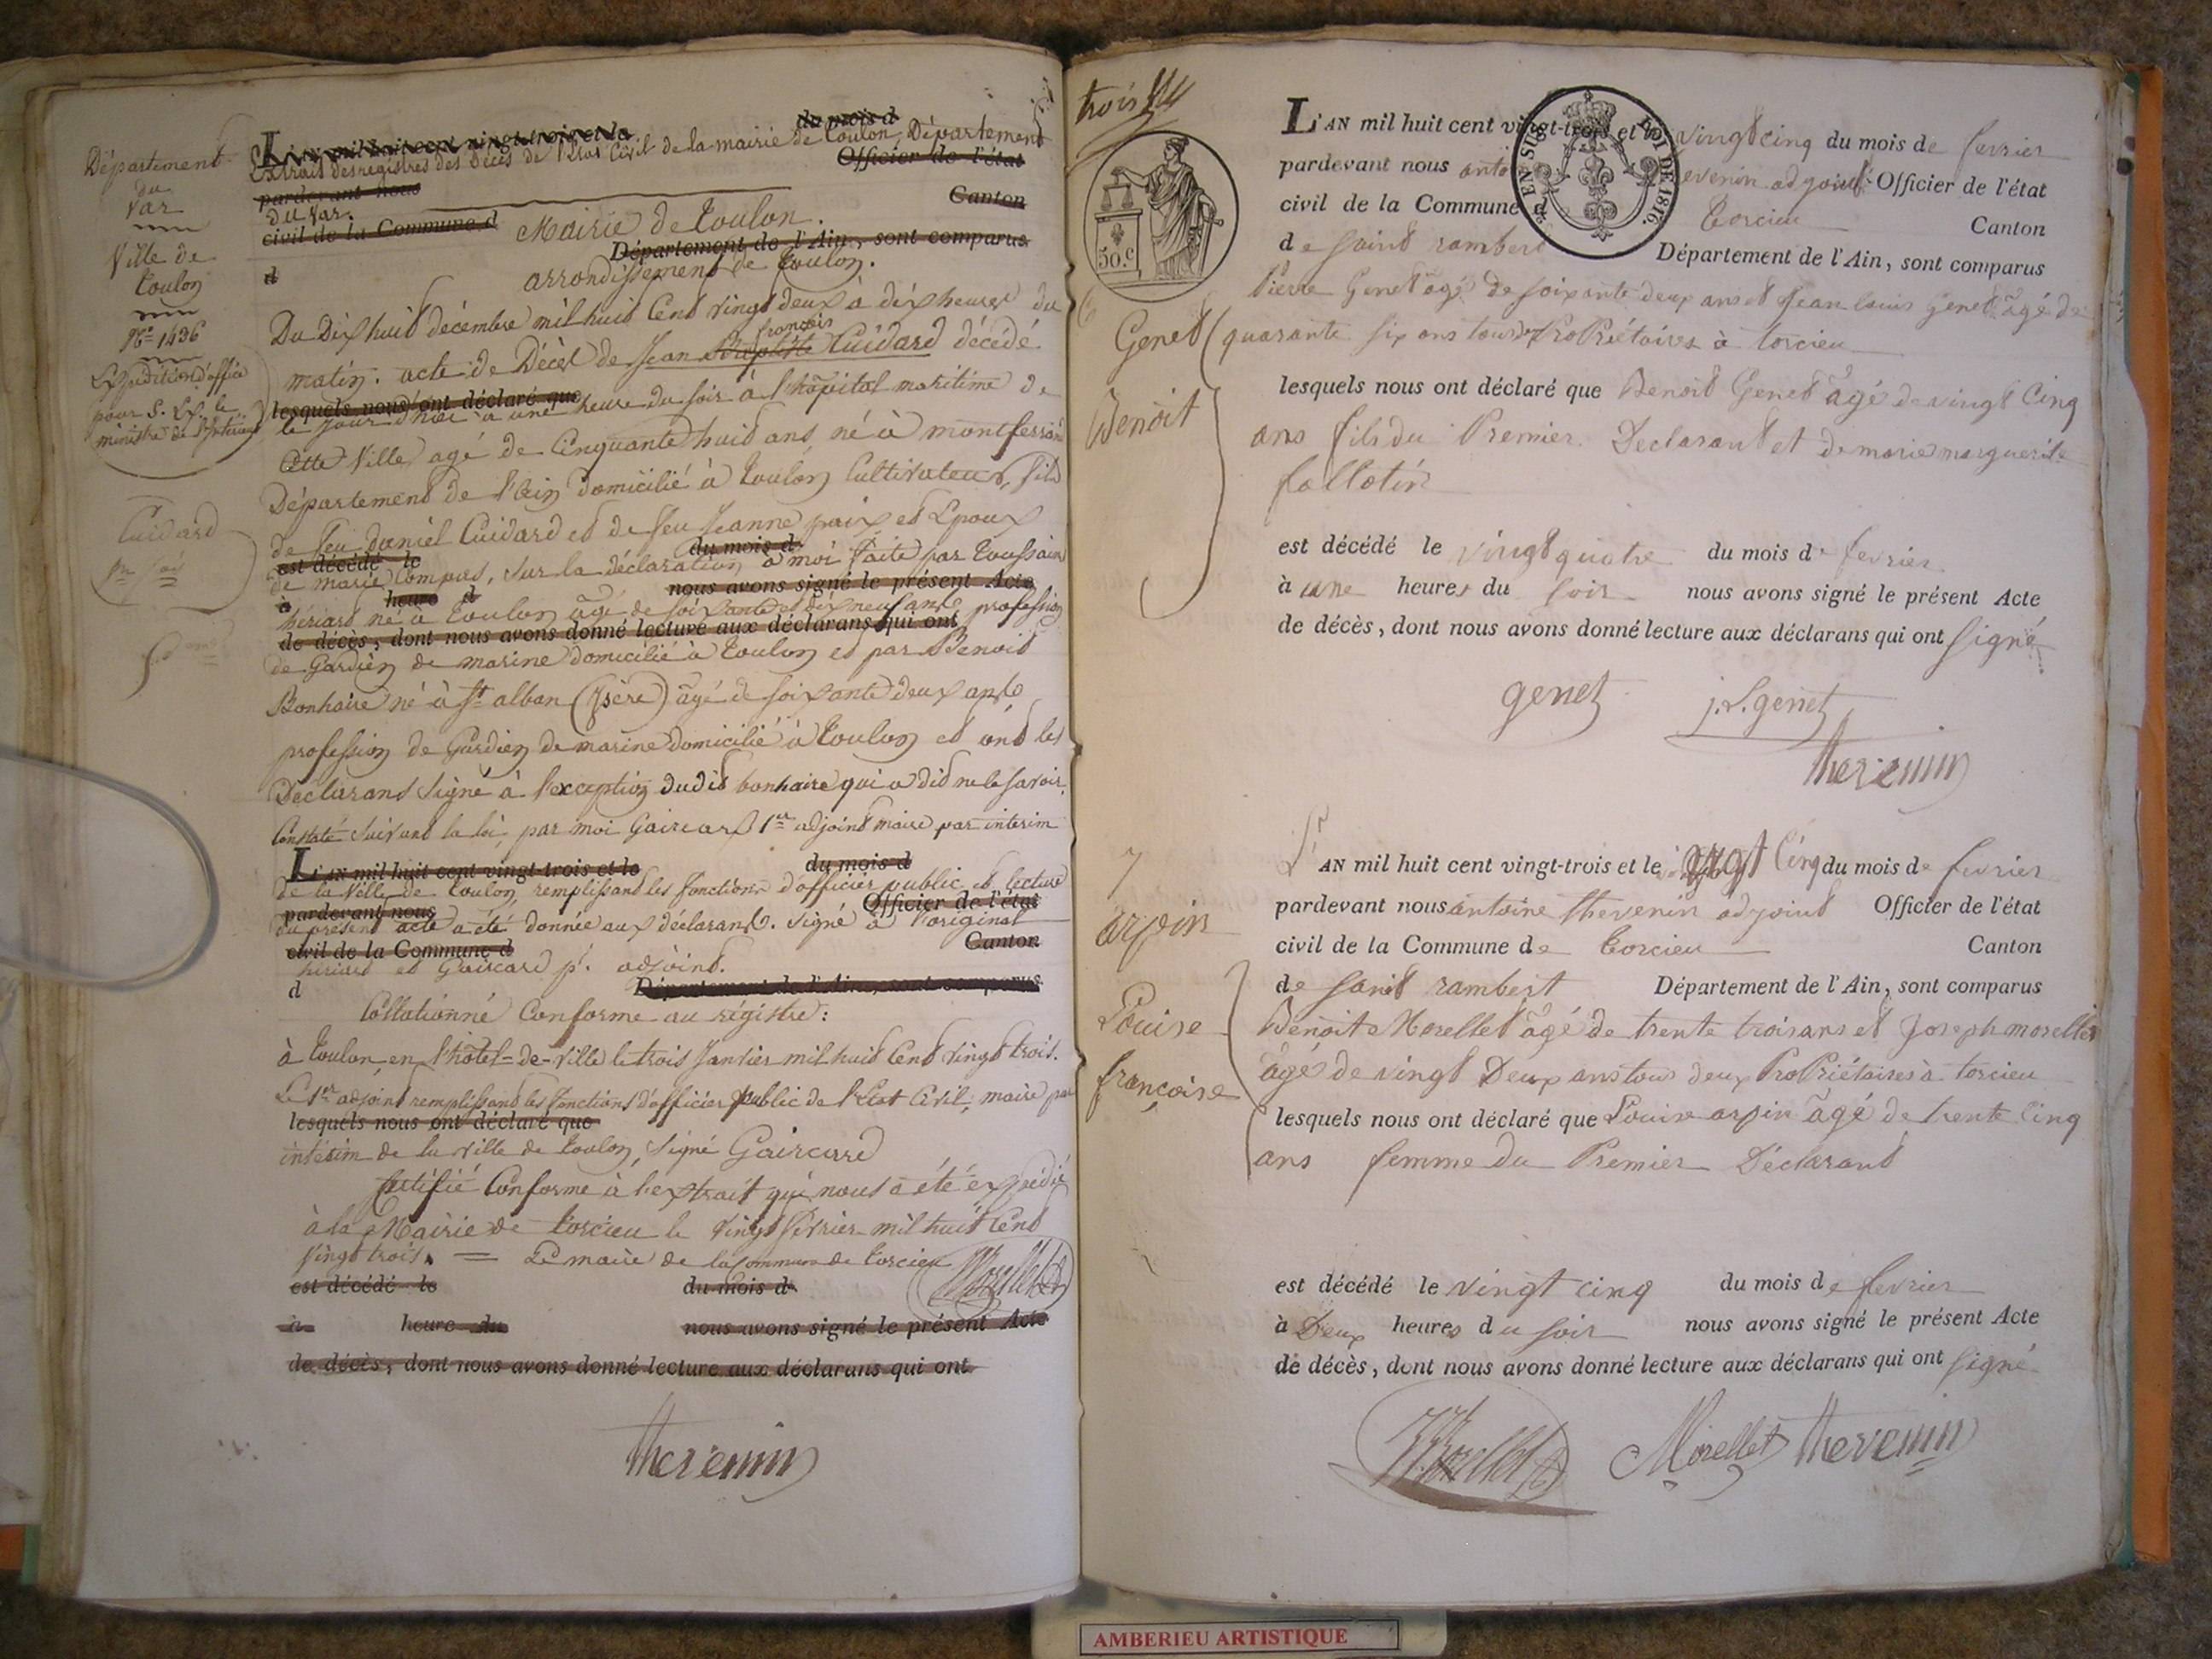 Département
du
Var
Ville de
Toulon
No. 1436
Expédition d'office
pour S. Ex. le
ministre de l'Intérieur
Cuidard
L'an mil huit cent vingt-trois et le du mois d
Extrait des registres des Décès de l'Etat Civil de la mairie de Toulon, Département
pardevant nous Officier de l'état
du Var.
civil de la Commune d Canton
Mairie de Toulon.
d Département de l'Ain, sont comparus
arrondissement de Toulon.
Du Dix huit décembre mil huit Cent vingt deux à dix heures du
françois
matin. acte de Décès de Jean Cuidard décédé
lesquels nous ont déclaré que
le jour d'hier à une heure du soir à l'hôpital maritime de
Cette Ville, agé de Cinquante huit ans né à montferrand
Département de l'Ain Domicilié à Toulon Cultivateur, fils
de feu daniel Cuidard et de feu Jeanne paix et Epoux
est décédé le du mois d
de marie Compas, sur la déclaration à moi faite par Toussaint
à heure d nous avons signé le présent Acte
hériard né à Toulon âgé de soixante et dix neuf ans profession
de décès, dont nous avons donné lecture aux déclarans qui ont
de Gardien de marine domicilié à Toulon et par Benoit
Bonhaire né à St alban (Isère) âgé de soixante deux ans
profession de Gardien de marine domicilié à Toulon et ont les
Déclarans signé à l'exception dudit bonhaire qui a dit ne le savoir.
Constaté suivant la loi, par moi Gaircard 1er adjoint maire par interim
L'an mil huit cent vingt-trois et le du mois d
de la Ville de Toulon, remplissant les fonctions d'officier public et lecture
pardevant nous Officier de l'état
du présent acte a été donnée aux déclarans. signé à l'original
civil de la Commune d Canton
hériard et Gaircard pr. adjoint.
d Département de l'Ain, sont comparus
Collationné Conforme au régistre:
à Toulon, en l'hôtel-de-ville le trois Janvier mil huit Cent vingt trois.
Le 1er adjoint remplissant les fonctions d'officier public de l'Etat Civil, maire par
lesquels nous ont déclaré que
intérim de la ville de Toulon, signé Gaircard
Certifié Conforme à l'extrait qui nous a été expédié
à la Mairie de torcieu le vingt février mil huit Cent
vingt trois. = Le maire de la Commune de torcieu
Morellet
est décédé le du mois d
à heure du nous avons signé le présent Acte
de décès, dont nous avons donné lecture aux déclarans qui ont
thevenin
trois
50.C
EN SUS
LOI DE 1816.
6
Genet
Benoit
L'AN mil huit cent vingt-trois et le vingt cinq du mois de fevrier
pardevant nous antoi evenin adjoint Officier de l'état
civil de la Commune de Torcieu Canton
de saint rambert Département de l'Ain, sont comparus
Pierre Genet âgé de soixante deux ans et Jean louis Genet âgé de
quarante six ans tous deux ProPriétaires à torcieu
lesquels nous ont déclaré que Benoit Genet âgé de vingt Cinq
ans fils du Premier Declarant et de marie marguerite
follotin
est décédé le vingt quatre du mois de fevrier
à une heures du soir nous avons signé le présent Acte
de décès, dont nous avons donné lecture aux déclarans qui ont signé
genet j.L. genet
thevenin
7
arpin
Louise
françoise
L'AN mil huit cent vingt-trois et le vingt Cinq du mois de fevrier
pardevant nous antoine thevenin adjoint Officier de l'état
civil de la Commune de Torcieu Canton
de saint rambert Département de l'Ain, sont comparus
Benoit Morellet âgé de trente trois ans et Joseph morellet
âgé de vingt Deux ans tous deux ProPriétaires à torcieu
lesquels nous ont déclaré que Louise arpin âgé de trente Cinq
ans femme du Premier Déclarant
est décédé le vingt cinq du mois de fevrier
à Deux heures du soir nous avons signé le présent Acte
de décès, dont nous avons donné lecture aux déclarans qui ont signé
Morellet Morellet thevenin
AMBERIEU ARTISTIQUE